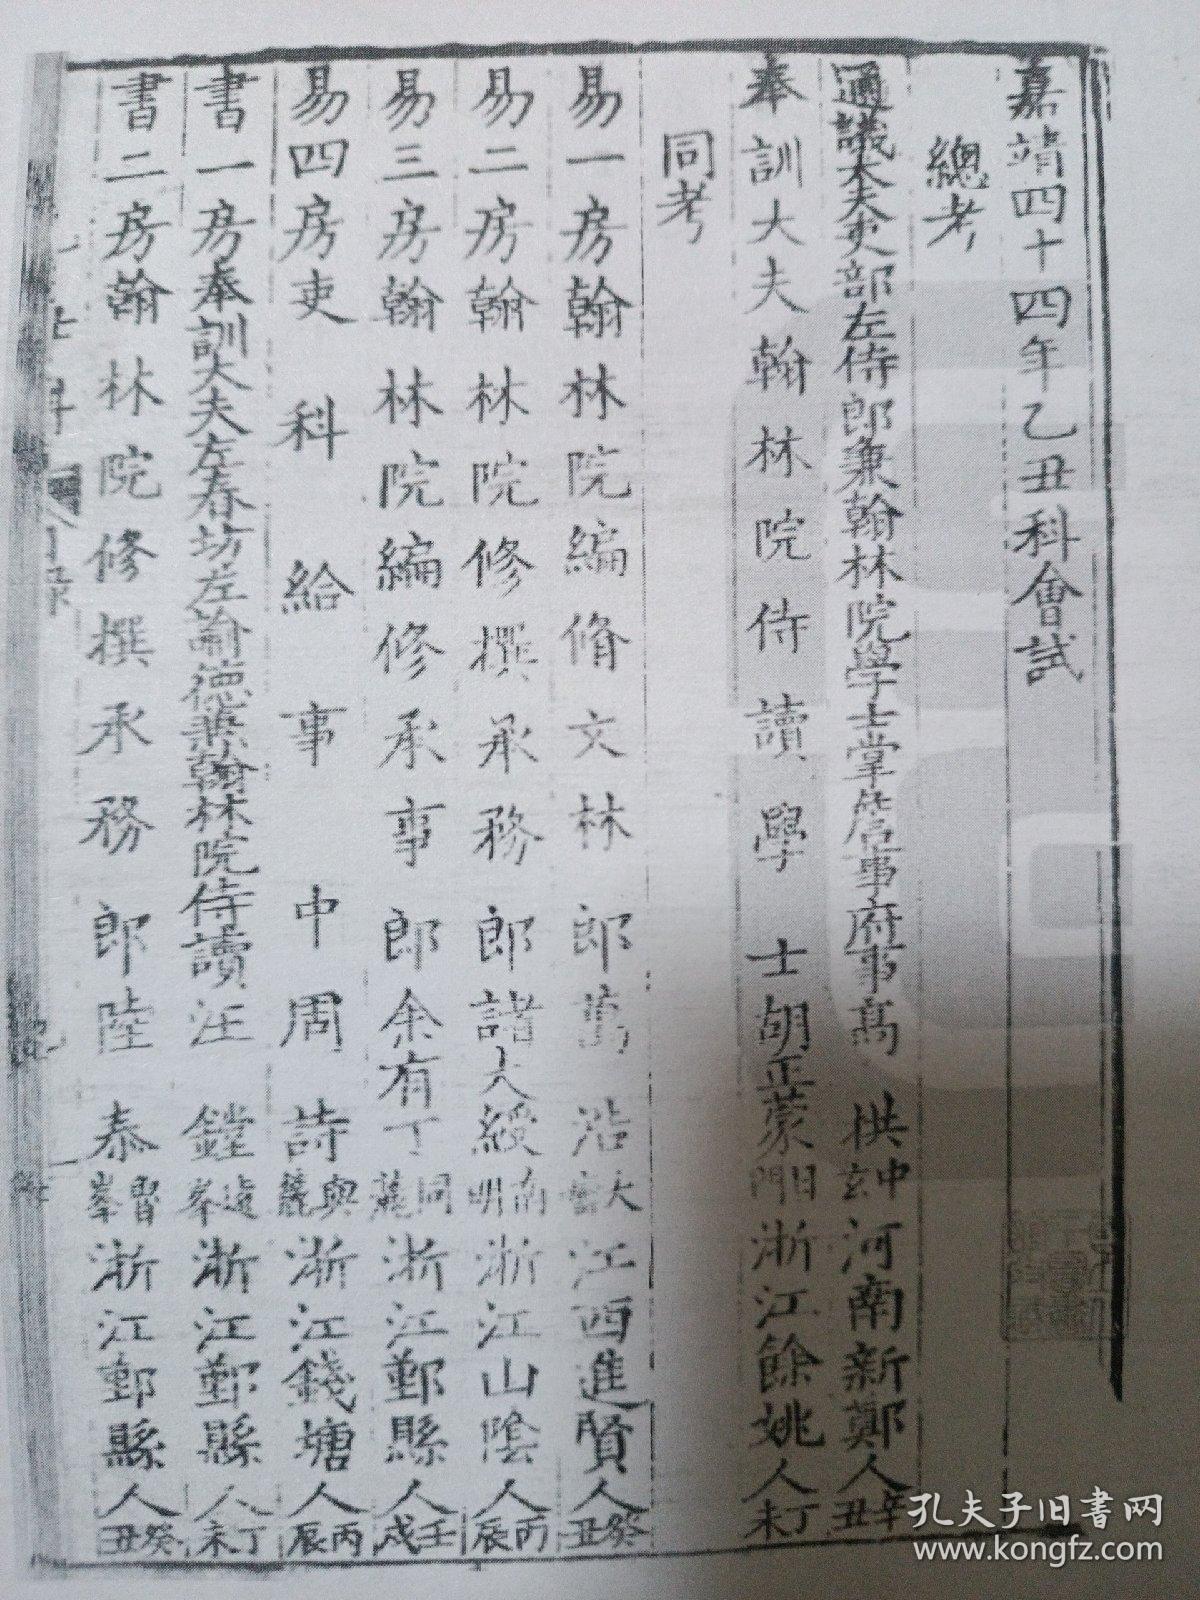 嘉靖四十四年乙丑科會試
總考
通議大夫吏部左侍郎兼翰林院學士掌詹事府事高 拱中玄河南新鄭人辛丑
奉訓大夫翰林院侍讀學士胡正蒙日門浙江餘姚人丁未
同考
易一房翰林院編脩文林郎萬浩大江西進賢人癸丑
易二房翰林院修撰承務郎諸大綬南明浙江山陰人丙辰
易三房翰林院編修承事郎余有丁同麓浙江鄞縣人壬戌
易四房吏科給事中周詩與鹿浙江錢塘人丙辰
書一房奉訓大夫左春坊左諭德兼翰林院侍讀汪 鏜遠峯浙江鄞縣人丁未
書二房翰林院修撰承務郎陸 泰峯浙江鄞縣人癸丑
孔夫子旧书网
www.kongfz.com